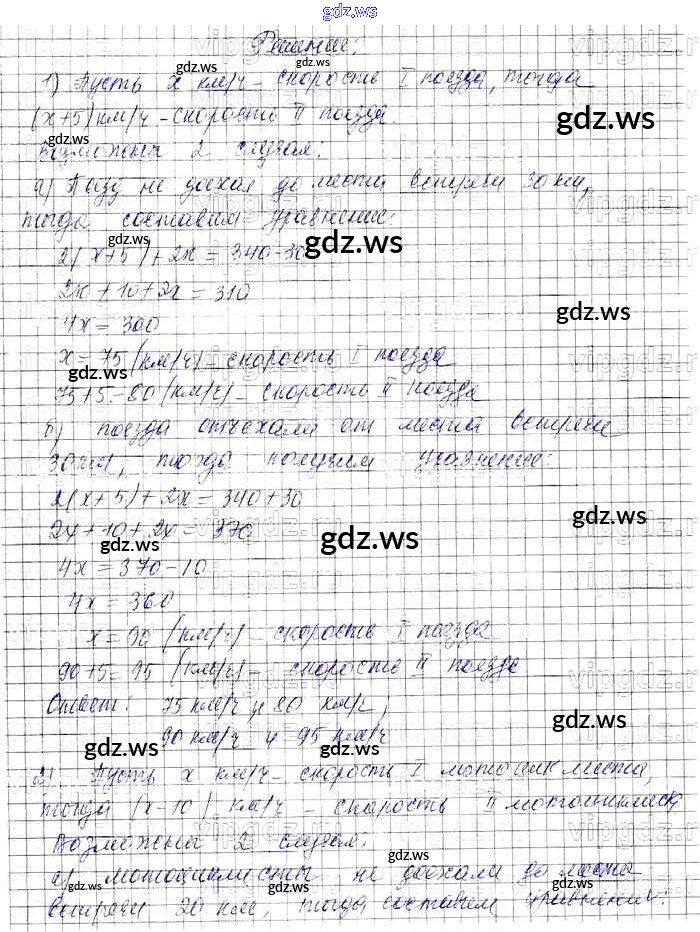 gdz.ws
Решение:
1) Пусть x км/ч - скорость I поезда, тогда
(x+5) км/ч - скорость II поезда.
gdz.ws
Возможны 2 случая:
а) Поезда не доехали до места встречи 30 км,
тогда составим уравнение:
2(x+5)+2x = 340-30
gdz.ws
2x+10+2x = 310
4x = 300
gdz.ws
x = 75 (км/ч) - скорость I поезда
gdz.ws
75+5=80 (км/ч) - скорость II поезда
б) поезда отъехали от места встречи
30 км, тогда получим уравнение:
gdz.ws
2(x+5)+2x = 340+30
gdz.ws
2x+10+2x = 370
gdz.ws
4x = 370-10
4x = 360
x = 90 (км/ч) - скорость I поезда
gdz.ws
90+5=95 (км/ч) - скорость II поезда
gdz.ws
Ответ: 75 км/ч и 80 км/ч,
gdz.ws
90 км/ч и 95 км/ч
2) Пусть x км/ч - скорость I мотоциклиста,
gdz.ws
тогда (x-10) км/ч - скорость II мотоциклиста
Возможны 2 случая:
gdz.ws
а) мотоциклисты не доехали до места
gdz.ws
встречи 20 км, тогда составим уравнение:
gdz.ws